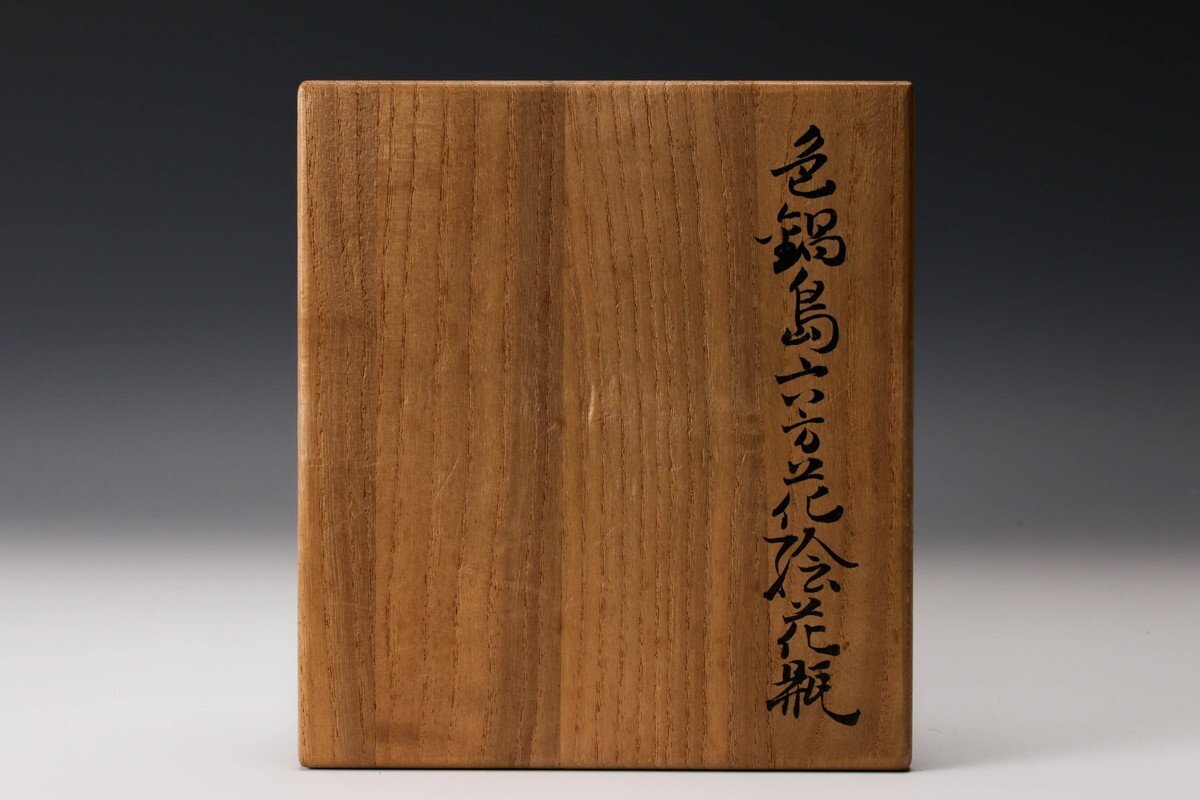 色鍋島六方花絵花瓶